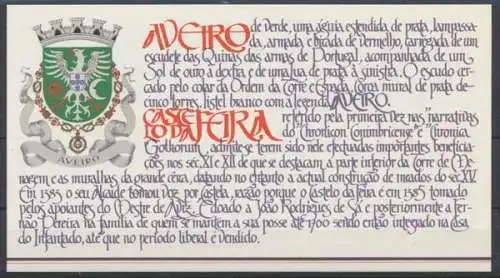 AVEIRO de verde, uma águia estendida de prata, lampassa-
da, armada e bicada de vermelho, carregada de um
escudete das Quinas das armas de Portugal, acompanhada de um
Sol de ouro à dextra e de uma lua de prata à sinistra. O escudo cer-
cado pelo colar da Ordem da Torre e Espada. Coroa mural de prata de
cinco torres. Listel branco com a legenda AVEIRO.
CASTE
LO DA FEIRA referido pela primeira vez nas "narrativas
do Chronicon Conimbricense" e "Cronica
Gothorum", admite-se terem sido nele efectuadas importantes beneficia-
ções nos séc. XI e XII de que se destacam a parte inferior da Torre de Me-
nagem e as muralhas da grande cêrca, datando no entanto a actual construção de meados do séc. XV.
Em 1385 o seu Alcaide tomou voz por Castela, razão porque o Castelo da Feira é em 1385 tomado
pelos apoiantes do Mestre de Aviz. É doado a João Rodrigues de Sá e posteriormente a Fer-
não Pereira na família de quem se mantém a sua posse até 1700 sendo então integrado na Casa
do Infantado, até que no período liberal é vendido.
AVEIRO